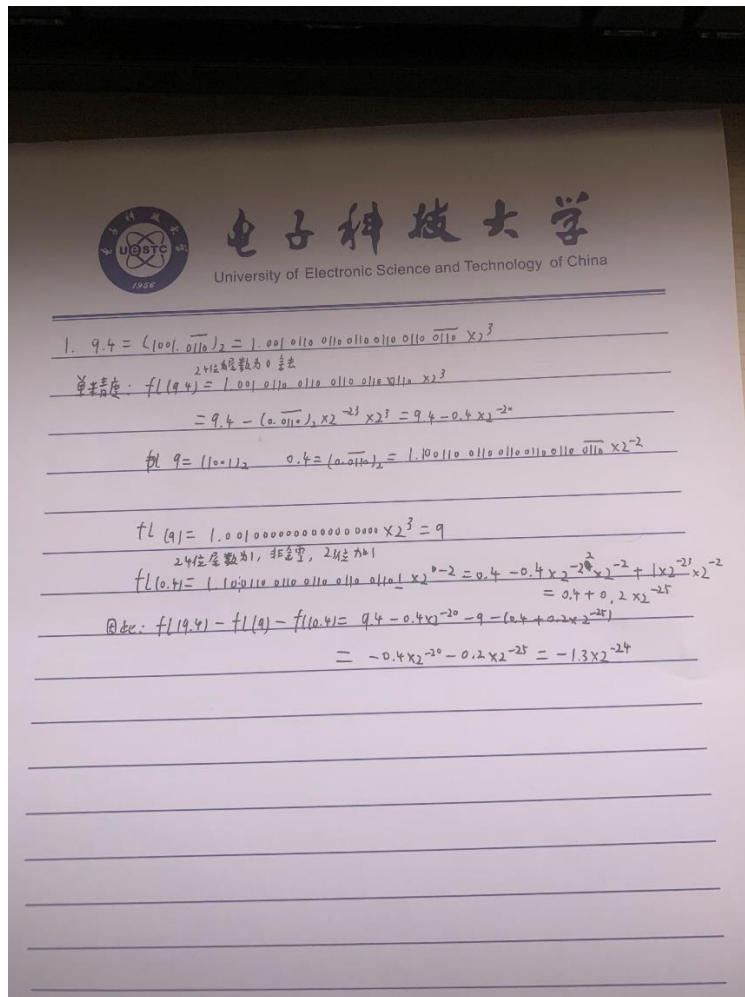 电子科技大学
UESTC
1956
University of Electronic Science and Technology of China
1. 9.4 = (1001.\overline{0110})₂ = 1.001 0110 0110 0110 0110 0110 \overline{0110} ×2³
24位尾数为0 舍去
单精度: fl(9.4) = 1.001 0110 0110 0110 0110 0110 ×2³
= 9.4 - (0.\overline{0110})₂ ×2⁻²³ ×2³ = 9.4 - 0.4 ×2⁻²⁰
9 = (1001)₂ 0.4 = (0.\overline{0110})₂ = 1.100110 0110 0110 0110 0110 \overline{0110} ×2⁻²
fl(9) = 1.00100000000000000000 ×2³ = 9
24位尾数为1, 非全零, 23位加1
fl(0.4) = 1.10 0110 0110 0110 0110 01101 ×2⁻² = 0.4 - 0.4×2⁻²²×2⁻² + 1×2⁻²³×2⁻²
= 0.4 + 0.2 ×2⁻²⁵
因此: fl(9.4) - fl(9) - fl(0.4) = 9.4 - 0.4×2⁻²⁰ - 9 - (0.4 + 0.2×2⁻²⁵)
= -0.4×2⁻²⁰ - 0.2×2⁻²⁵ = -1.3×2⁻²⁴